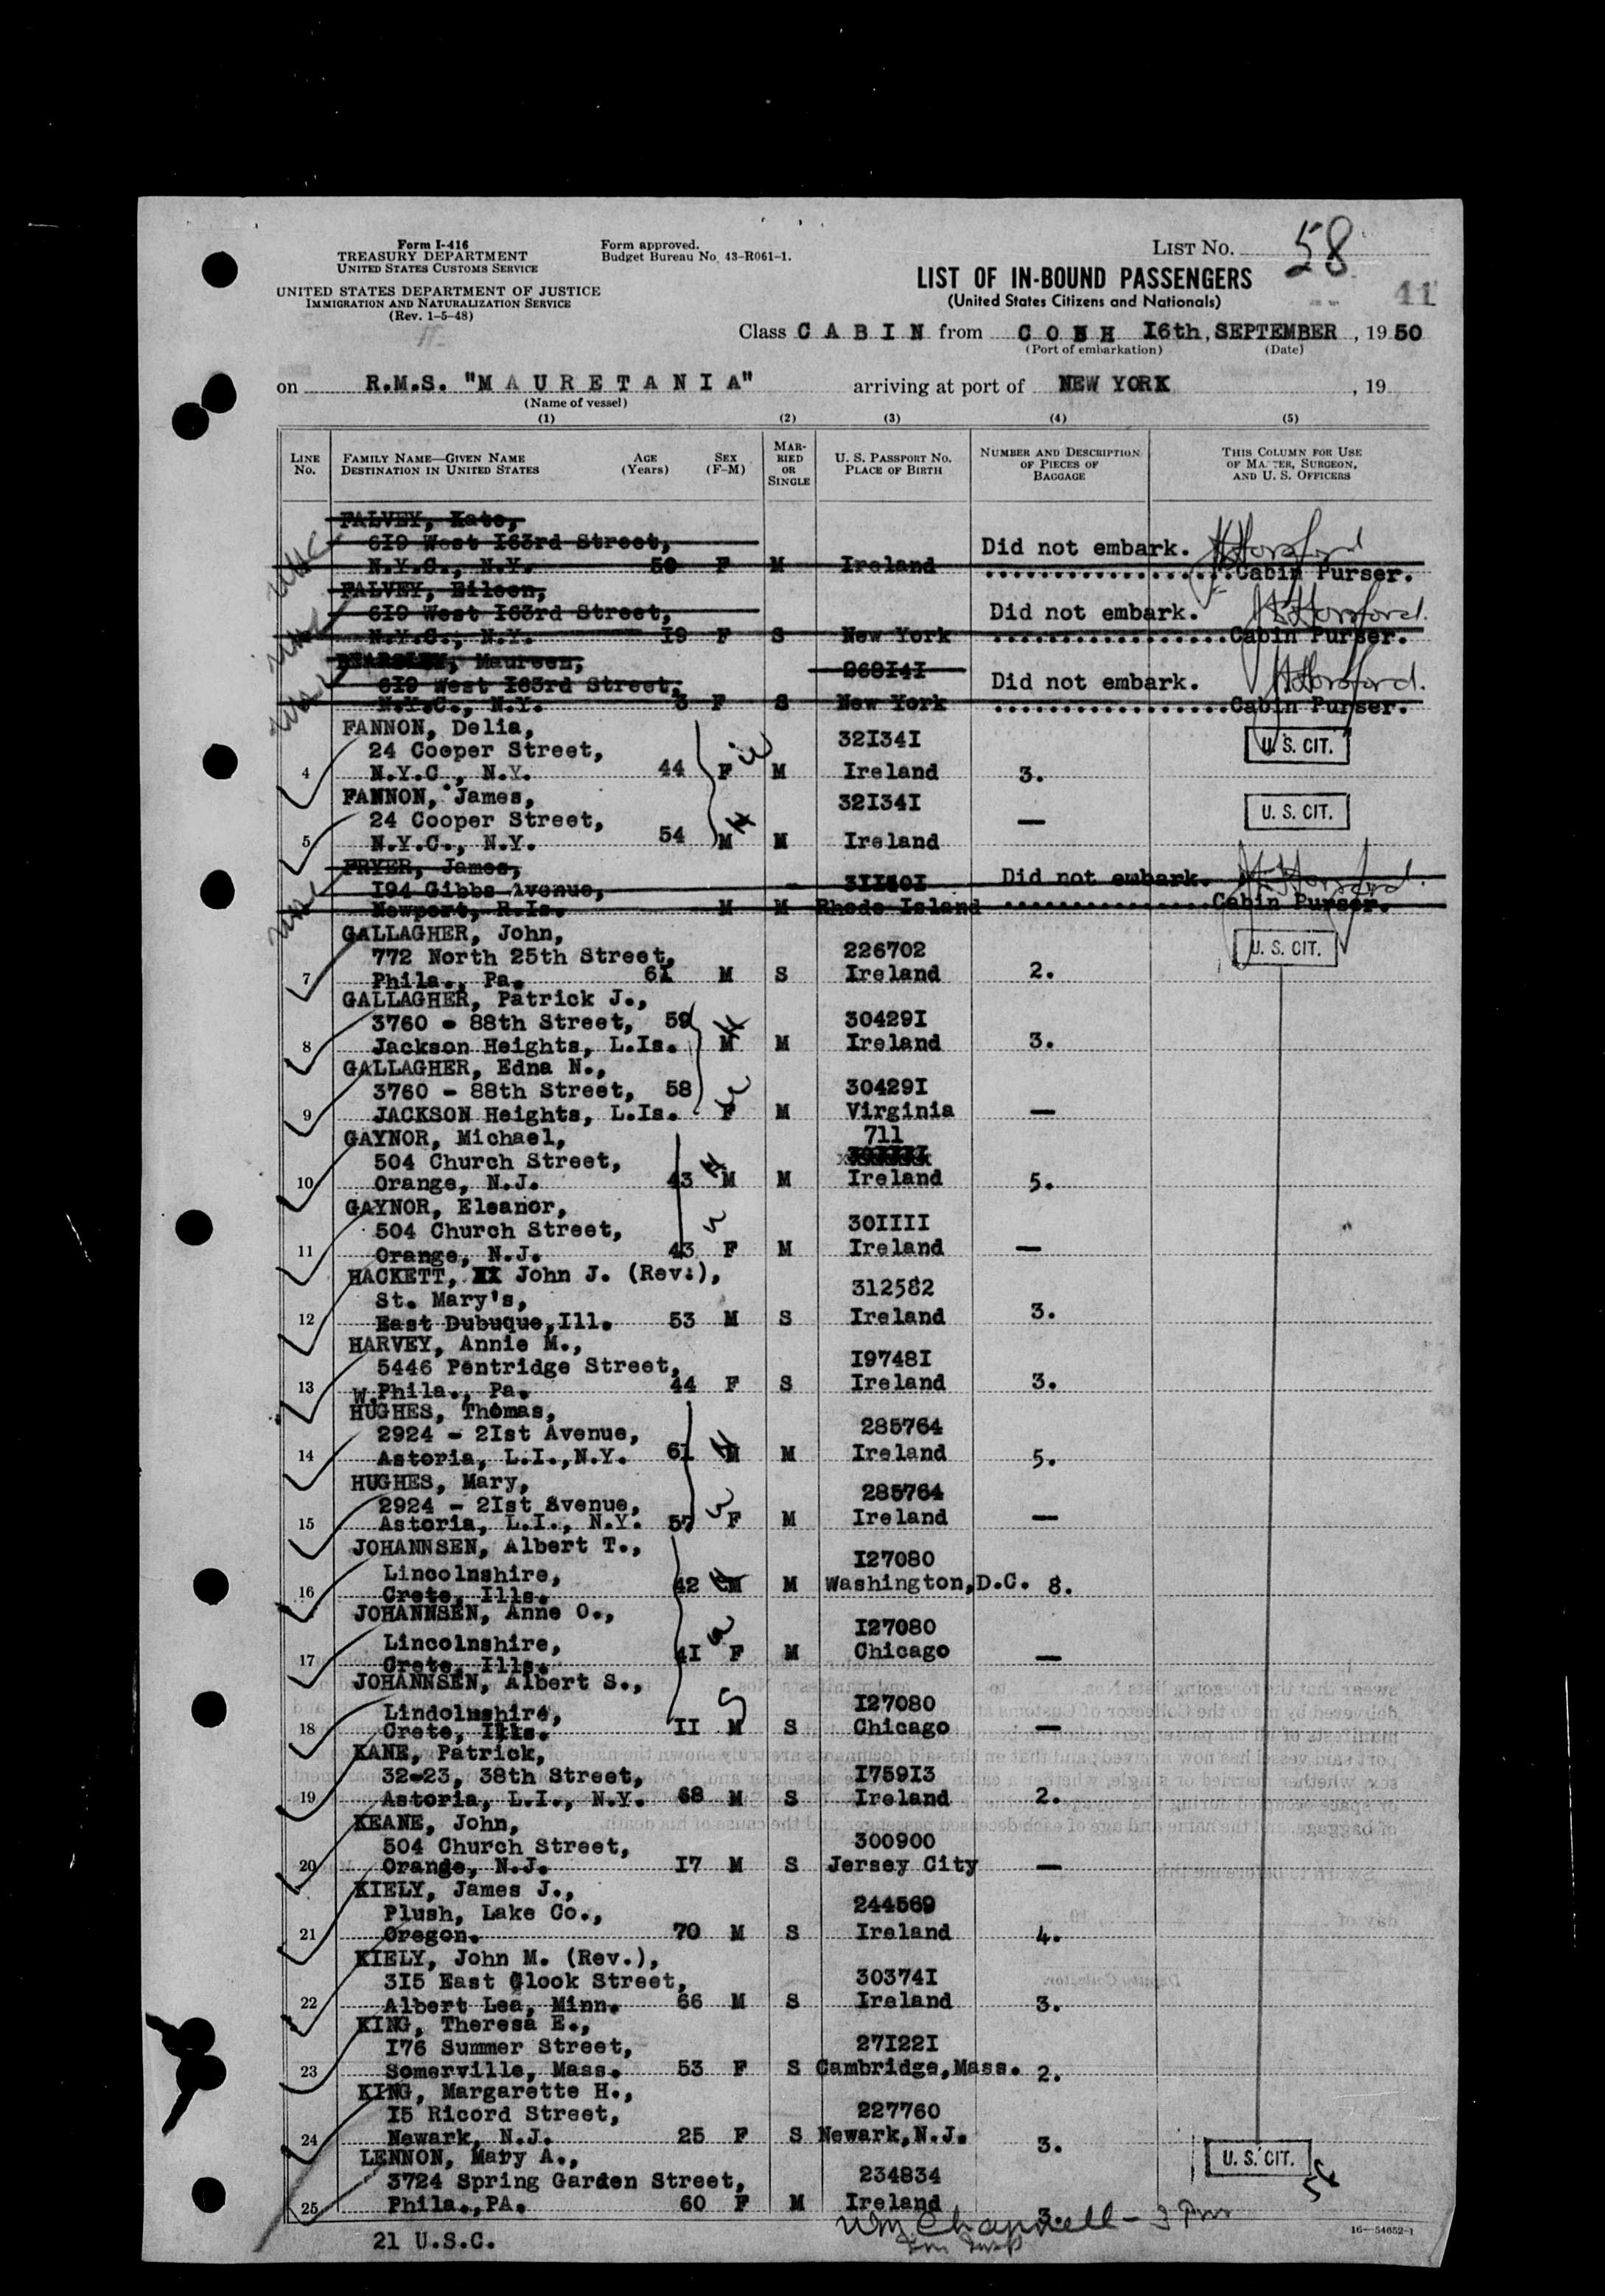 Form I-416
TREASURY DEPARTMENT
UNITED STATES CUSTOMS SERVICE
UNITED STATES DEPARTMENT OF JUSTICE
IMMIGRATION AND NATURALIZATION SERVICE
(Rev. 1-5-48)
Form approved.
Budget Bureau No. 43-R061-1.
LIST NO. 58
LIST OF IN-BOUND PASSENGERS
(United States Citizens and Nationals)
41
Class C A B I N from C O B H 16th, SEPTEMBER , 19 50
(Port of embarkation) (Date)
on R.M.S. "M A U R E T A N I A" arriving at port of NEW YORK , 19
(Name of vessel)
(1) (2) (3) (4) (5)
LINE NO. FAMILY NAME—GIVEN NAME DESTINATION IN UNITED STATES AGE (Years) SEX (F-M) MARRIED OR SINGLE U. S. PASSPORT NO. PLACE OF BIRTH NUMBER AND DESCRIPTION OF PIECES OF BAGGAGE THIS COLUMN FOR USE OF MASTER, SURGEON, AND U. S. OFFICERS
FALVEY, Kate,
6I9 West I63rd Street, Did not embark.
N.Y.C., N.Y. 50 F M Ireland Cabin Purser.
FALVEY, Eileen,
6I9 West I63rd Street, Did not embark.
N.Y.C., N.Y. I9 F S New York Cabin Purser.
Maureen,
6I9 West I63rd Street, 268I4I Did not embark.
N.Y.C., N.Y. 3 F S New York Cabin Purser.
FANNON, Delia,
24 Cooper Street, 32I34I U. S. CIT.
4 N.Y.C., N.Y. 44 F M Ireland 3.
FANNON, James,
24 Cooper Street, 32I34I U. S. CIT.
5 N.Y.C., N.Y. 54 M M Ireland —
FRYER, James,
I94 Gibbs Avenue, Did not embark.
Newport, R.Is. M M Rhode Island Cabin Purser.
GALLAGHER, John,
772 North 25th Street, 226702 U. S. CIT.
7 Phila., Pa. 6I M S Ireland 2.
GALLAGHER, Patrick J.,
3760 - 88th Street, 59 30429I
8 Jackson Heights, L.Is. M M Ireland 3.
GALLAGHER, Edna N.,
3760 - 88th Street, 58 30429I
9 JACKSON Heights, L.Is. F M Virginia —
GAYNOR, Michael, 711
504 Church Street,
10 Orange, N.J. 43 M M Ireland 5.
GAYNOR, Eleanor,
504 Church Street, 30IIII
11 Orange, N.J. 43 F M Ireland —
HACKETT, John J. (Rev.),
St. Mary's, 312582
12 East Dubuque,Ill. 53 M S Ireland 3.
HARVEY, Annie M.,
5446 Pentridge Street, I9748I
13 W.Phila., Pa. 44 F S Ireland 3.
HUGHES, Thomas,
2924 - 2Ist Avenue, 285764
14 Astoria, L.I.,N.Y. 61 M M Ireland 5.
HUGHES, Mary,
2924 - 2Ist Avenue, 285764
15 Astoria, L.I., N.Y. 57 F M Ireland —
JOHANNSEN, Albert T.,
Lincolnshire, I27080
16 Crete, Ills. 42 M M Washington,D.C. 8.
JOHANNSEN, Anne O.,
Lincolnshire, I27080
17 Crete, Ills. 4I F M Chicago —
JOHANNSEN, Albert S.,
Lindolnshire, I27080
18 Crete, Ills. II M S Chicago —
KANE, Patrick,
32-23, 38th Street, I759I3
19 Astoria, L.I., N.Y. 68 M S Ireland 2.
KEANE, John,
504 Church Street, 300900
20 Orange, N.J. I7 M S Jersey City —
KIELY, James J.,
Plush, Lake Co., 244569
21 Oregon. 70 M S Ireland 4.
KIELY, John M. (Rev.),
3I5 East Clook Street, 30374I
22 Albert Lea, Minn. 66 M S Ireland 3.
KING, Theresa E.,
I76 Summer Street, 27I22I
23 Somerville, Mass. 53 F S Cambridge,Mass. 2.
KING, Margarette H.,
I5 Ricord Street, 227760
24 Newark, N.J. 25 F S Newark,N.J. 3.
LENNON, Mary A., U. S. CIT.
3724 Spring Garden Street, 234834
25 Phila.,PA. 60 F M Ireland 3.
21 U.S.C.
16—54652-1